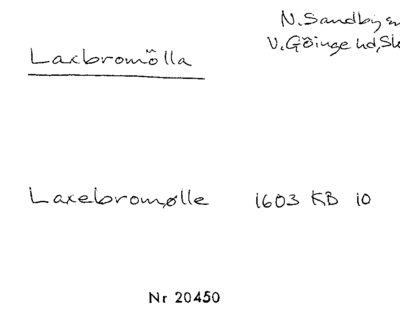 N. Sandby sn
Laxbromölla
V. Göinge hd, Sk
Laxebromølle 1603 KB 10
Nr 20450